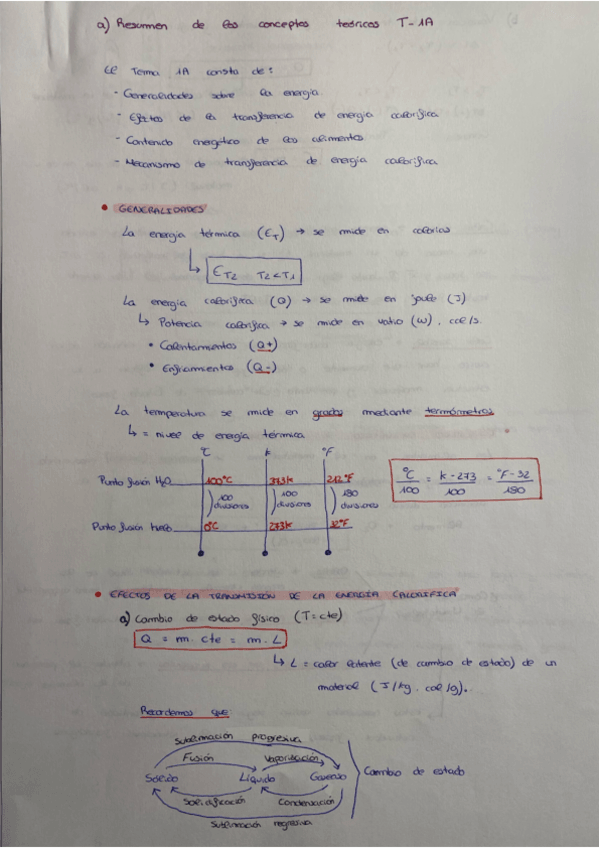 a) Resumen de los conceptos teóricos T-1A
El Tema 1A consta de:
- Generalidades sobre la energía.
- Efectos de la transferencia de energía calorífica
- Contenido energético de los alimentos
- Mecanismo de transferencia de energía calorífica
• GENERALIDADES
La energía térmica (ET) → se mide en calorías
↳ ET2 T2<T1
La energía calorífica (Q) → se mide en joule (J)
↳ Potencia calorífica → se mide en vatio (W), cal/s.
• Calentamientos (Q+)
• Enfriamientos (Q-)
La temperatura se mide en grados mediante termómetros
↳ = nivel de energía térmica
°C K °F
Punto fusión H2O 100°C 373K 212°F
100 divisiones 100 divisiones 180 divisiones
Punto fusión hielo 0°C 273K 32°F
°C/100 = K-273/100 = °F-32/180
• EFECTOS DE LA TRANSMISIÓN DE LA ENERGÍA CALORÍFICA
a) Cambio de estado físico (T=cte)
Q = m. cte = m. L
↳ L = calor latente (de cambio de estado) de un
material (J/kg. cal/g).
Recordemos que:
Sublimación progresiva
Fusión Vaporización
Sólido Líquido Gaseoso Cambio de estado
Solidificación Condensación
Sublimación regresiva